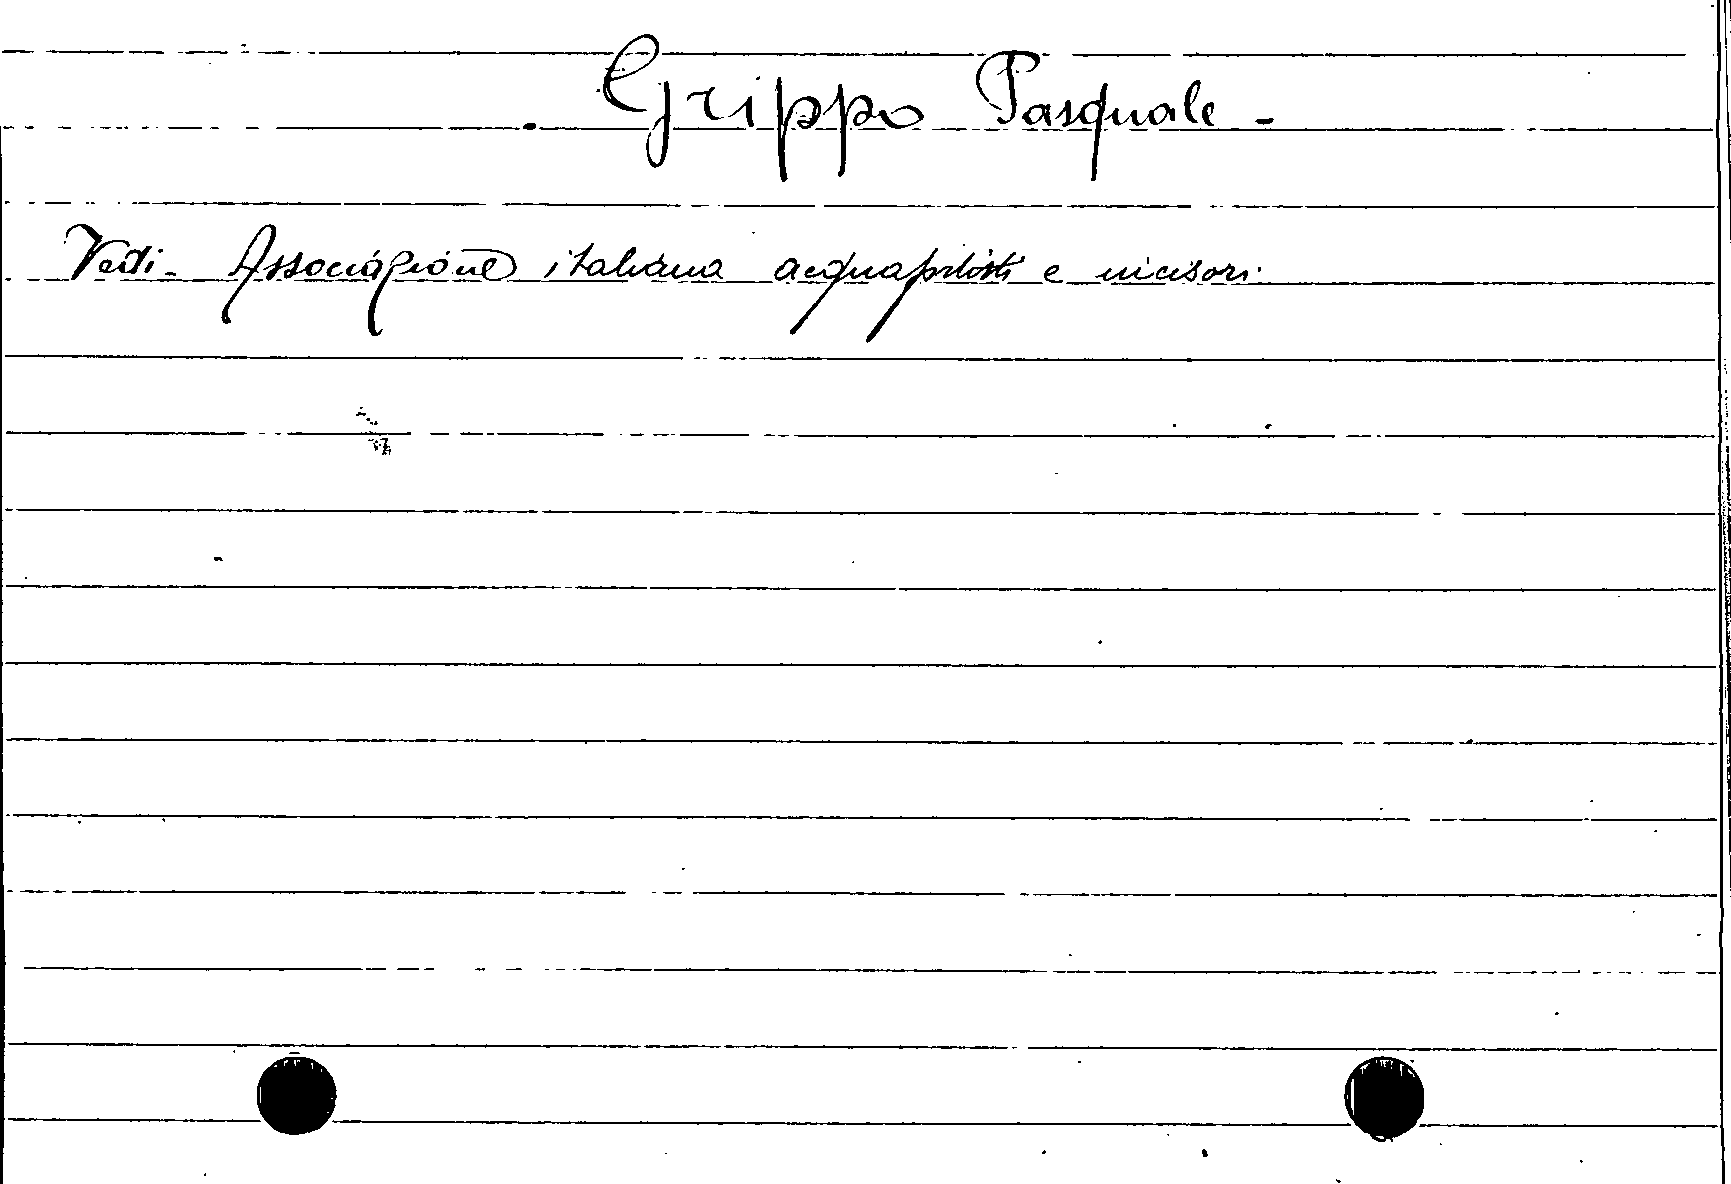 Grippo Pasquale -
Vedi - Associazione italiana acquafortisti e incisori.